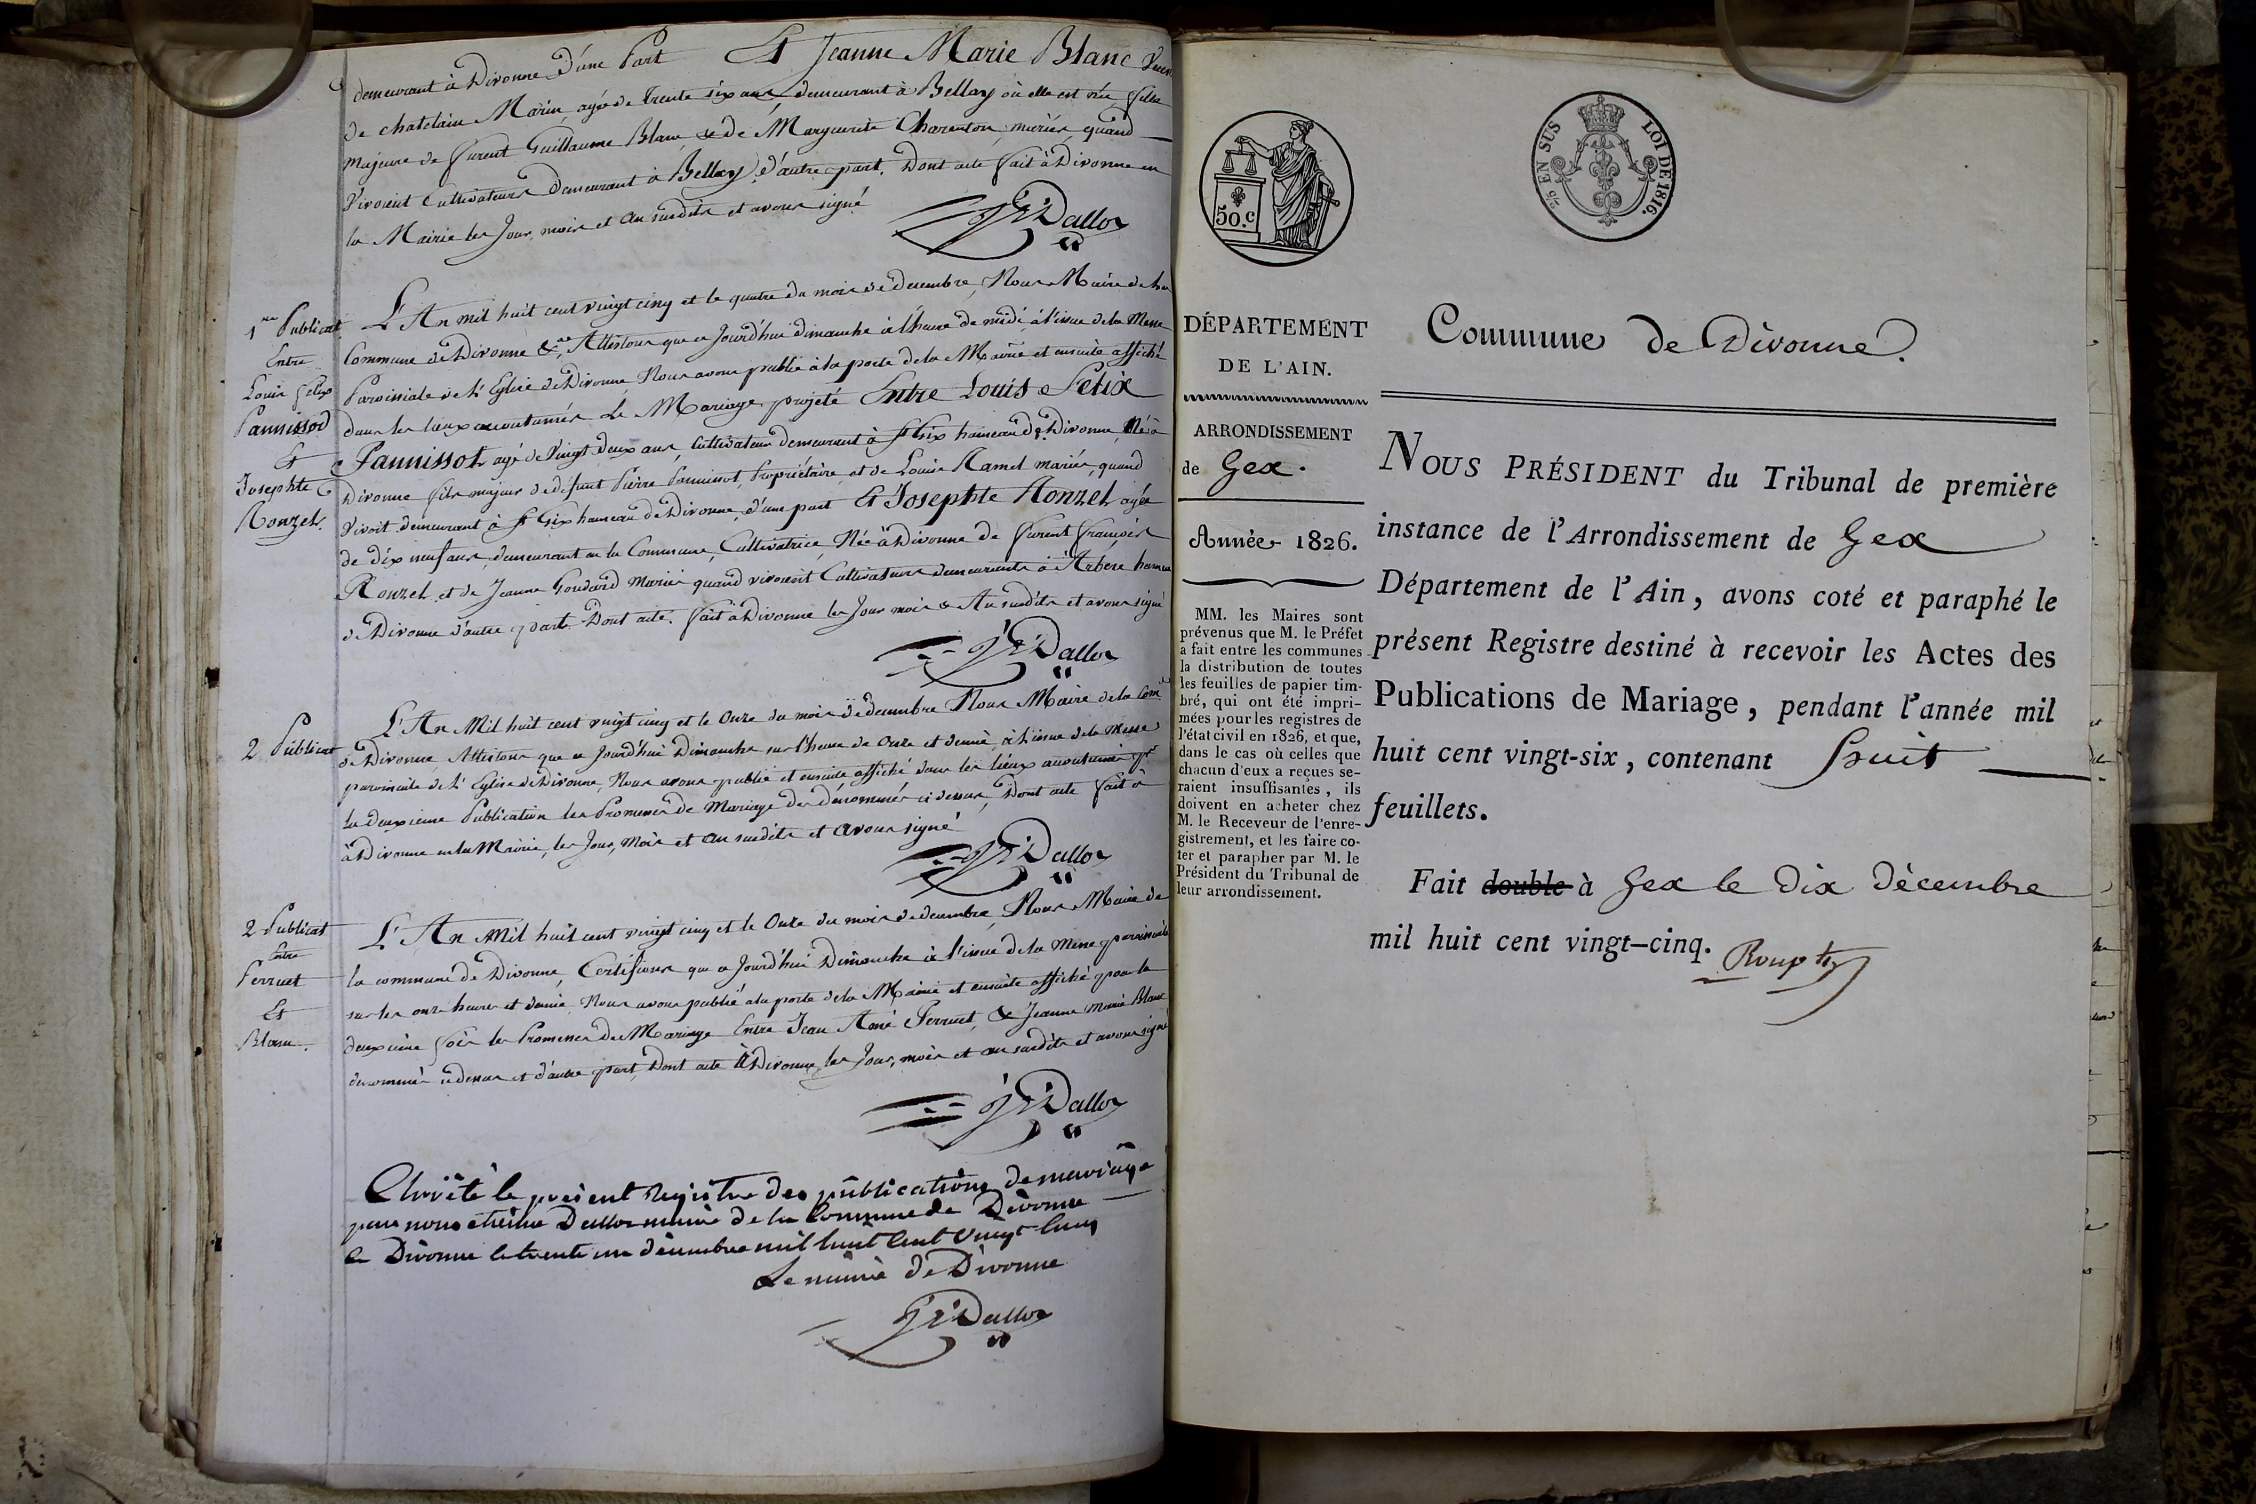 demeurant à Divonne d'une Part Et Jeanne Marie Blanc Veuve
de chatelain Marin, agée de Trente six ans, demeurant à Bellay où elle est née, fille
majeure de furent Guillaume Blanc & de Marguerite Charenton, mariés, quand
vivoient Cultivateurs demeurant à Bellay, d'autre part. Dont acte fait à Divonne en
la Mairie les Jour, mois et an susdits et avons signé
Dallos
1re Publicat
Entre
Louis felix
Pannissod
Et
Josephte
Ronzel.
L'An mil huit cent vingt cinq et le quatre du mois de decembre, Nous Maire de la
Commune de Divonne &ca, Attestons que ce Jourd'hui dimanche à l'heure de midi à l'issue de la Messe
Paroissiale de l'Eglise de Divonne Nous avons publié à la porte de la Mairie et ensuite affiché
dans les lieux accoutumés Le Mariage projeté Entre Louis Felix
Pannissot, agé de Vingt deux ans, Cultivateur demeurant à St Gix hameau de Divonne, Né à
Divonne fils majeur de défunt Pierre Pannissot, Propriétaire, et de Louise Ramel mariés, quand
Vivoit demeurant à St Gix hameau de Divonne, d'une part Et Josephte Ronzel, agée
de dix neuf ans, demeurant en la Commune, Cultivatrice, Née à Divonne de furent François
Ronzel et de Jeanne Goudard Mariés quand vivoient Cultivateurs demeurants à Arbere hameau
de Divonne d'autre part. Dont acte. fait à Divonne les Jour mois & An susdits et avons signé
Dallos
2 Publicat
L'An Mil huit cent vingt cinq et le Onze du mois de decembre Nous Maire de la Come
de Divonne, Attestons que ce Jourd'hui Dimanche sur l'heure de Onze et demie, à l'issue de la Messe
paroissiale de l'Eglise de Divonne, Nous avons publié et ensuite affiché dans les lieux accoutumés pr
la deuxieme Publication les Promesses de Mariage des dénommés ci dessus, Dont acte fait à
à Divonne en la Mairie, les Jour, Mois et an susdits et avons signé
Dallos
2 Publicat
Entre
Perruet
Et
Blanc.
L'An Mil huit cent vingt cinq et le Onze du mois de decembre, Nous Maire de
la commune de Divonne, Certifions que ce Jourd'hui Dimanche à l'issue de la Messe paroissiale
sur les onze heures et demie, Nous avons publié à la porte de la Mairie et ensuite affiché pour la
deuxieme fois les Promesses de Mariage Entre Jean Aimé Perruet, & Jeanne Marie Blanc
denommés cidessus et d'autre part, Dont acte à Divonne, les Jour, mois et an susdits et avons signé
Dallos
Arrêté le présent Registre des publications de mariage
par nous etienne Dallos maire de la Commune de Divonne
a Divonne le trente un décembre mil huit Cent Vingt Cinq
Le maire de Divonne
Dallos
50.c
EN SUS
LOI DE 1816.
DÉPARTEMENT
DE L'AIN.
ARRONDISSEMENT
de Gex.
Année 1826.
MM. les Maires sont
prévenus que M. le Préfet
a fait entre les communes
la distribution de toutes
les feuilles de papier tim-
bré, qui ont été impri-
mées pour les registres de
l'état civil en 1826, et que,
dans le cas où celles que
chacun d'eux a reçues se-
raient insuffisantes, ils
doivent en acheter chez
M. le Receveur de l'enre-
gistrement, et les faire co-
ter et parapher par M. le
Président du Tribunal de
leur arrondissement.
Commune de Divonne.
NOUS PRÉSIDENT du Tribunal de première
instance de l'Arrondissement de Gex
Département de l'Ain, avons coté et paraphé le
présent Registre destiné à recevoir les Actes des
Publications de Mariage, pendant l'année mil
huit cent vingt-six, contenant huit
feuillets.
Fait double à Gex le dix décembre
mil huit cent vingt-cinq.